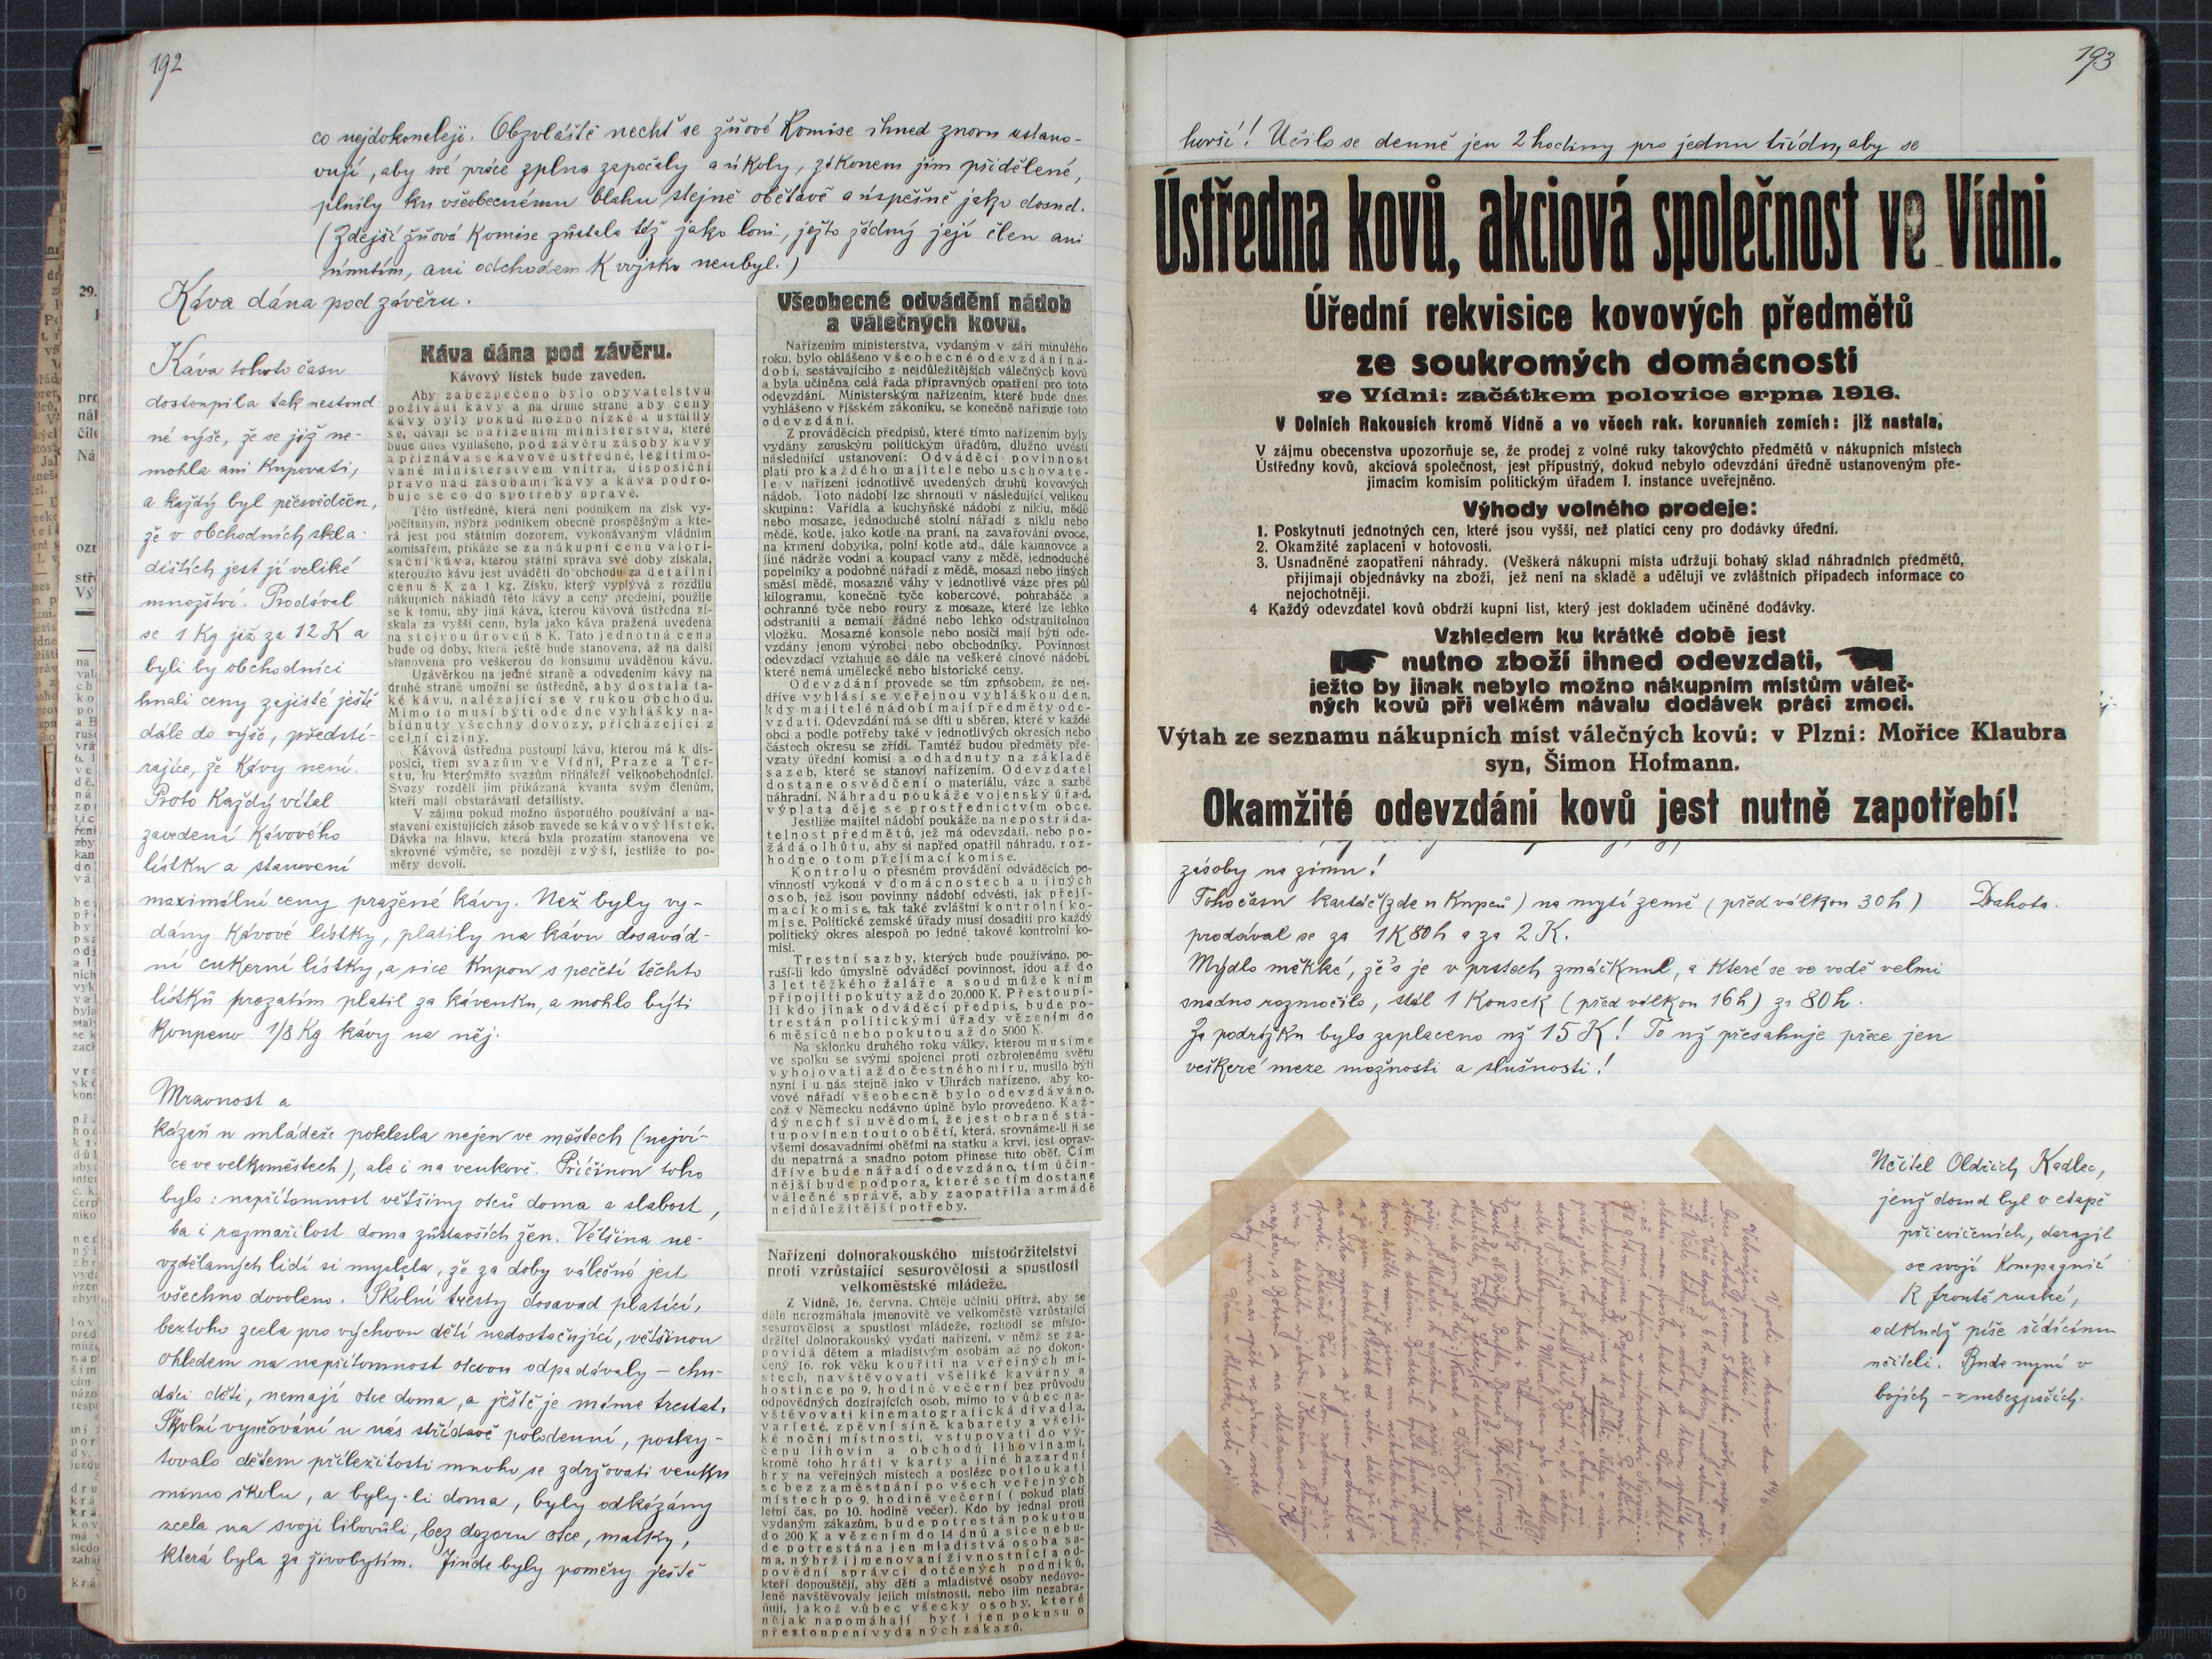 192
co nejdokonaleji. Obzvláště nechť se žňové Komise ihned znovu ustano-
vují, aby své práce zplna započaly a úkoly, zákonem jim přidělené,
plnily ku všeobecnému blahu stejně obětavě a úspěšně jako dosud.
(Zdejší žňová Komise zůstala též jako loni, ježto žádný její člen ani
úmrtím, ani odchodem K vojsku neubyl.)
Káva dána pod závěru.
Káva tohoto času
dostoupila tak nestoud-
né výše, že se již ne-
mohla ani Kupovati,
a každý byl přesvědčen,
že v obchodních skla-
dištích jest jí veliké
množství. Prodával
se 1 Kg již za 12 K a
byli by obchodníci
hnali ceny zajisté ještě
dále do výše, předstí-
rajíce, že Kávy není.
Proto Každý vítal
zavedení Kávového
lístku a stanovení
maximální ceny pražené kávy. Než byly vy-
dány Kávové lístky, platily na kávu dosavád-
ní cukerní lístky, a sice Kupon s pečetí těchto
lístků prozatím platil za kávenku, a mohlo býti
Koupeno 1/8 Kg kávy na něj.
Mravnost a
Kázeň u mládeže poklesla nejen ve městech (nejví-
ce ve velkoměstech), ale i na venkově. Příčinou toho
bylo: nepřítomnost většiny otců doma a slabost,
ba i rozmařilost doma zůstavších žen. Většina ne-
vzdělaných lidí si myslela, že za doby válečné jest
všechno dovoleno. Školní tresty dosavad platící,
beztoho zcela pro výchovu dětí nedostačující, většinou
ohledem na nepřítomnost otcovu odpadávaly – chu-
dáci děti, nemají otce doma, a ještě je máme trestat.
Školní vyučování u nás střídavě polodenní, posky-
tovalo dětem příležitosti mnoho se zdržovati venku
mimo školu, a byly-li doma, byly odkázány
zcela na svoji libovůli, bez dozoru otce, matky,
která byla za živobytím. Jinde byly poměry ještě
Káva dána pod závěru.
Kávový lístek bude zaveden.
Aby zabezpečeno bylo obyvatelstvu
požívání kávy a na druhé straně aby ceny
kávy byly pokud možno nízké a ustálily
se, dávají se nařízením ministerstva, které
bude dnes vyhlášeno, pod závěru zásoby kávy
a přiznává se kávové ústředně, legitimo-
vané ministerstvem vnitra, disposiční
právo nad zásobami kávy a káva podro-
buje se co do spotřeby úpravě.
Této ústředně, která není podnikem na zisk vy-
počítaným, nýbrž podnikem obecně prospěšným a kte-
rá jest pod státním dozorem, vykonávaným vládním
komisařem, přikáže se za nákupní cenu valori-
sační káva, kterou státní správa své doby získala,
kteroužto kávu jest uváděti do obchodu za detailní
cenu 8 K za 1 kg. Zisku, který vyplývá z rozdílu
nákupních nákladů této kávy a ceny prodejní, použije
se k tomu, aby jiná káva, kterou kávová ústředna zí-
skala za vyšší cenu, byla jako káva pražená uvedena
na stejnou úroveň 8 K. Tato jednotná cena
bude od doby, která ještě bude stanovena, až na další
stanovena pro veškerou do konsumu uváděnou kávu.
Uzávěrkou na jedné straně a odvedením kávy na
druhé straně umožní se ústředně, aby dostala ta-
ké kávu, nalézající se v rukou obchodu.
Mimo to musí býti ode dne vyhlášky na-
bídnuty všechny dovozy, přicházející z
celní ciziny.
Kávová ústředna postoupí kávu, kterou má k dis-
posici, třem svazům ve Vídni, Praze a Ter-
stu, ku kterýmžto svazům přináleží velkoobchodníci.
Svazy rozdělí jim přikázaná kvanta svým členům,
kteří mají obstarávati detailisty.
V zájmu pokud možno úsporného používání a na-
stavení existujících zásob zavede se kávový lístek.
Dávka na hlavu, která byla prozatím stanovena ve
skrovné výměře, se později zvýší, jestliže to po-
měry dovolí.
Všeobecné odvádění nádob
a válečných kovů.
Nařízením ministerstva, vydaným v září minulého
roku, bylo ohlášeno všeobecné odevzdání ná-
dobí, sestávajícího z nejdůležitějších válečných kovů
a byla učiněna celá řada přípravných opatření pro toto
odevzdání. Ministerským nařízením, které bude dnes
vyhlášeno v říšském zákoníku, se konečně nařizuje toto
odevzdání.
Z prováděcích předpisů, které tímto nařízením byly
vydány zemským politickým úřadům, dlužno uvésti
následující ustanovení: Odváděcí povinnost
platí pro každého majitele nebo uschovate-
le v nařízení jednotlivě uvedených druhů kovových
nádob. Toto nádobí lze shrnouti v následující velikou
skupinu: Vařidla a kuchyňské nádobí z niklu, mědě
nebo mosaze, jednoduché stolní nářadí z niklu nebo
mědě, kotle, jako kotle na praní, na zavařování ovoce,
na krmení dobytka, polní kotle atd., dále kamnovce a
jiné nádrže vodní a koupací vany z mědě, jednoduché
popelníky a podobné nářadí z mědě, mosazi nebo jiných
směsí mědě, mosazné váhy v jednotlivé váze přes půl
kilogramu, konečně tyče kobercové, pohrabáče a
ochranné tyče nebo roury z mosaze, které lze lehko
odstraniti a nemají žádné nebo lehko odstranitelnou
vložku. Mosazné konsole nebo nosiči mají býti ode-
vzdány jenom výrobci nebo obchodníky. Povinnost
odevzdací vztahuje se dále na veškeré cínové nádobí,
které nemá umělecké nebo historické ceny.
Odevzdání provede se tím způsobem, že nej-
dříve vyhlásí se veřejnou vyhláškou den,
kdy majitelé nádobí mají předměty ode-
vzdati. Odevzdání má se díti u sběren, které v každé
obci a podle potřeby také v jednotlivých okresích nebo
částech okresu se zřídí. Tamtéž budou předměty pře-
vzaty úřední komisí a odhadnuty na základě
sazeb, které se stanoví nařízením. Odevzdatel
dostane osvědčení o materiálu, váze a sazbě
náhradní. Náhradu poukáže vojenský úřad,
výplata děje se prostřednictvím obce.
Jestliže majitel nádobí poukáže na nepostráda-
telnost předmětů, jež má odevzdati, nebo po-
žádá o lhůtu, aby si napřed opatřil náhradu, roz-
hodne o tom přejímací komise.
Kontrolu o přesném provádění odváděcích po-
vinností vykoná v domácnostech a u jiných
osob, jež jsou povinny nádobí odvésti, jak přejí-
mací komise, tak také zvláštní kontrolní ko-
mise. Politické zemské úřady musí dosaditi pro každý
politický okres alespoň po jedné takové kontrolní ko-
misi.
Trestní sazby, kterých bude používáno, po-
ruší-li kdo úmyslně odváděcí povinnost, jdou až do
3 let těžkého žaláře a soud může k ním
připojiti pokuty až do 20.000 K. Přestoupí-
li kdo jinak odváděcí předpis, bude po-
trestán politickými úřady vězením do
6 měsíců nebo pokutou až do 5000 K.
Na sklonku druhého roku války, kterou musíme
ve spolku se svými spojenci proti ozbrojenému světu
vybojovati až do čestného míru, musilo býti
nyní i u nás stejně jako v Uhrách nařízeno, aby ko-
vové nářadí všeobecně bylo odevzdáváno,
což v Německu nedávno úplně bylo provedeno. Kaž-
dý nechť si uvědomí, že jest obraně stá-
tu povinen touto obětí, která, srovnáme-li ji se
všemi dosavadními oběťmi na statku a krvi, jest oprav-
du nepatrná a snadno potom přinese tuto oběť. Čím
dříve bude nářadí odevzdáno, tím účin-
nější bude podpora, které se tím dostane
válečné správě, aby zaopatřila armádě
nejdůležitější potřeby.
Nařízení dolnorakouského místodržitelství
proti vzrůstající sesurovělosti a spustlosti
velkoměstské mládeže.
Z Vídně, 16. června. Chtěje učiniti přítrž, aby se
dále nerozmáhala jmenovitě ve velkoměstě vzrůstající
sesurovělost a spustlost mládeže, rozhodl se místo-
držitel dolnorakouský vydati nařízení, v němž se za-
povídá dětem a mladistvým osobám až po dokon-
čený 16. rok věku kouřiti na veřejných mí-
stech, navštěvovati všeliké kavárny a
hostince po 9. hodině večerní bez průvodu
odpovědných dozírajících osob, mimo to vůbec na-
vštěvovati kinematografická divadla,
varieté, zpěvní síně, kabarety a všeli-
ké noční místnosti, vstupovati do vý-
čepu lihovin a obchodů lihovinami,
kromě toho hráti v karty a jiné hazardní
hry na veřejných místech a posléze potloukati
se bez zaměstnání po všech veřejných
místech po 9. hodině večerní (pokud platí
letní čas, po 10. hodině večer). Kdo by jednal proti
vydaným zákazům, bude potrestán pokutou
do 200 K a vězením do 14 dnů a sice nebu-
de potrestána jen mladistvá osoba sa-
ma, nýbrž i jmenovaní živnostníci a od-
povědní správci dotčených podniků,
kteří dopouštějí, aby děti a mladistvé osoby nedovo-
leně navštěvovaly jejich místnosti, nebo jim nezabra-
ňují, jakož vůbec všecky osoby, které
nějak napomáhají byť i jen pokusu o
přestoupení vydaných zákazů.
193
horší! Učilo se denně jen 2 hodiny pro jednu třídu, aby se
Ústředna kovů, akciová společnost ve Vídni.
Úřední rekvisice kovových předmětů
ze soukromých domácností
ve Vídni: začátkem polovice srpna 1916.
V Dolních Rakousích kromě Vídně a ve všech rak. korunních zemích: již nastala.
V zájmu obecenstva upozorňuje se, že prodej z volné ruky takovýchto předmětů v nákupních místech
Ústředny kovů, akciová společnost, jest přípustný, dokud nebylo odevzdání úředně ustanoveným pře-
jímacím komisím politickým úřadem I. instance uveřejněno.
Výhody volného prodeje:
1. Poskytnutí jednotných cen, které jsou vyšší, než platící ceny pro dodávky úřední.
2. Okamžité zaplacení v hotovosti.
3. Usnadněné zaopatření náhrady. (Veškerá nákupní místa udržují bohatý sklad náhradních předmětů,
přijímají objednávky na zboží, jež není na skladě a udělují ve zvláštních případech informace co
nejochotněji.
4 Každý odevzdatel kovů obdrží kupní list, který jest dokladem učiněné dodávky.
Vzhledem ku krátké době jest
nutno zboží ihned odevzdati,
ježto by jinak nebylo možno nákupním místům váleč-
ných kovů při velkém návalu dodávek práci zmoci.
Výtah ze seznamu nákupních míst válečných kovů: v Plzni: Mořice Klaubra
syn, Šimon Hofmann.
Okamžité odevzdání kovů jest nutně zapotřebí!
zásoby na zimu!
Toho času kartáč (zde u Kupců) na mytí země (před válkou 30 h)
Drahota.
prodával se za 1K 80h a za 2 K.
Mýdlo měkké, že's je v prstech zmáčknul, a které se ve vodě velmi
snadno rozmočilo, stál 1 Kousek (před válkou 16h) za 80h.
Za podrážku bylo zaplaceno už 15 K! To už přesahuje přece jen
veškeré meze možnosti a slušnosti!
Učitel Oldřich Kadlec,
jenž dosud byl v etapě
při cvičeních, dorazil
se svojí Kumpagnií
K frontě ruské,
odkudž píše řídícímu
učiteli. Bude nyní v
bojích – v nebezpečích.